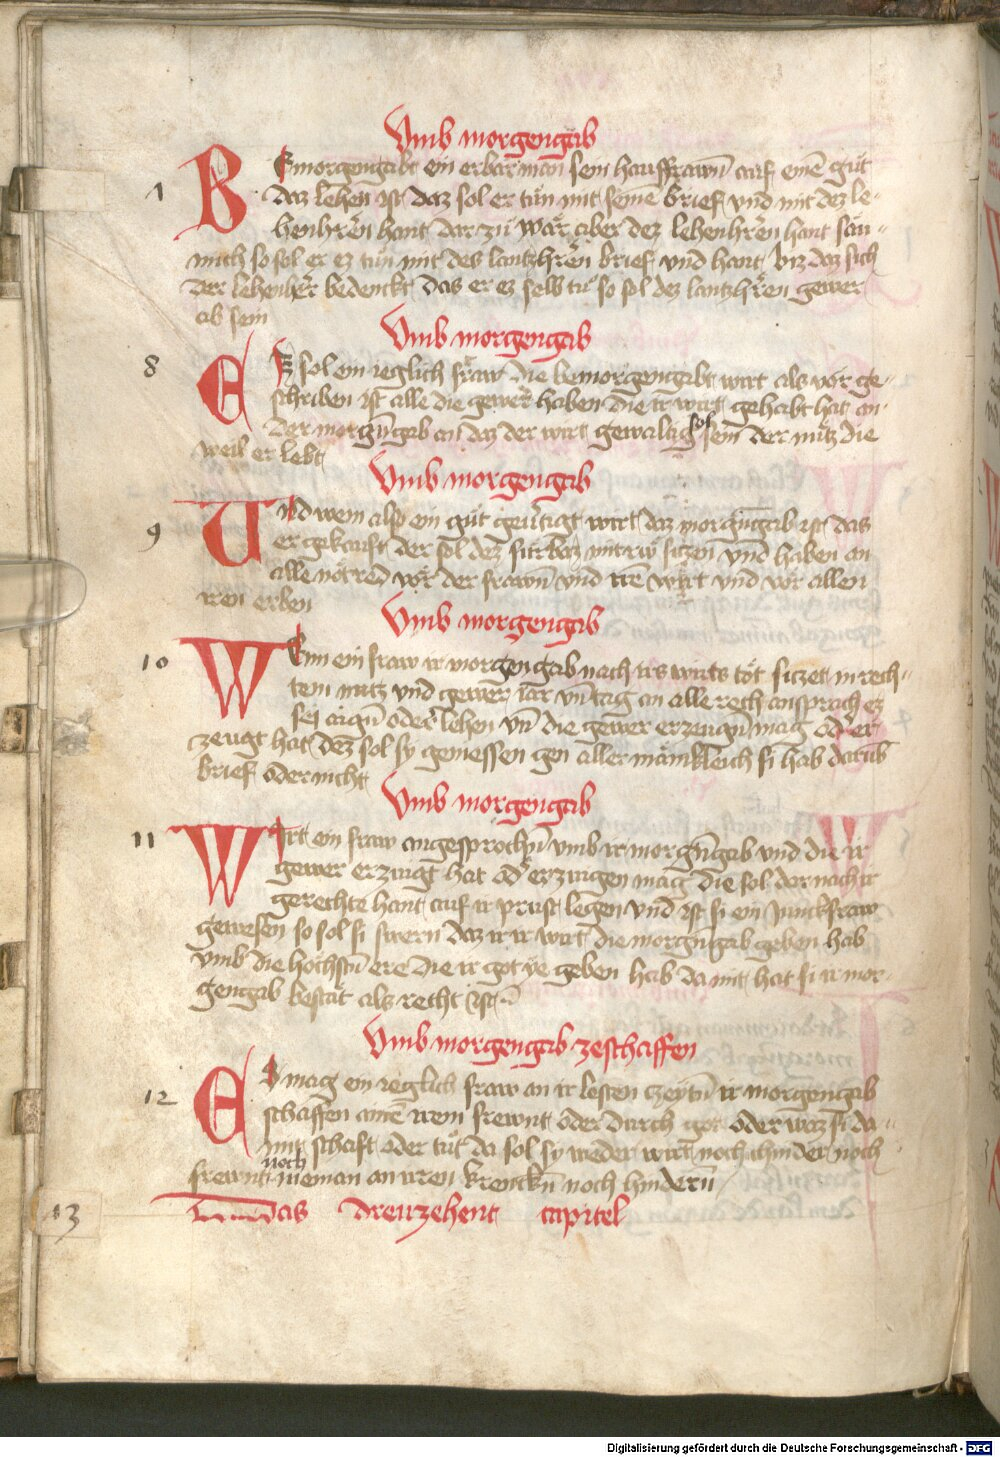 Vmb morgengab
1 BEmorgengabt ein erbar man sein hausfrawn̄ auf einē gůt
daz lehen ist daz sol er tůn mit seinē brief vnd mit dez le-
henhr̄en hant dar zů wår aber dez lehenhr̄en hant såu-
mich so sol er ez tůn mit des lantzhr̄en brief vnd hant biz daz sich
der lehenhr̄ bedenckt das er ez selb tů so sol dez lantzhr̄en gewer
ab sein
Vmb morgengab
8 Ez sol ein yeglich fraw die bemorgengabt wirt als vor ge-
schriben ist alle die gewer haben die ir wirt gehabt hat an
der morgn̄gab an daz der wirt gewaltig sol sein der nutz die
weil er lebt
Vmb morgengab
9 Vnd wem also ein gůt geuertigt wirt daz morgn̄gab ist das
er gekauft der sol dez fůrbaz mit rů sitzen vnd haben an
alle nötred vor der frawn̄ vnd irē wirt vnd vor allen
iren erben
Vmb morgengab
10 WEnn ein fraw ir morgengab nach irs wirts tôt siczet in rech-
tem nutz vnd gewer iar vn̄ tag an alle recht ansprach ez
sej aigen oder lehen vn̄ die gewer erzeugn̄ mag oder er-
zeugt hat dez sol sy geniessen gen aller mänikleich si hab darūb
brief oder nicht
Vmb morgengab
11 WIrt ein fraw angesprochn̄ vmb ir morgn̄gab vnd die ir
gewer erzeugt hat od' erzeugen mag die sol dar nach ir
gerechte hant auf ir prust legen vnd ist si ein junckfraw
gewesen so sol si swern daz ir ir wirt die morgn̄gab geben hab
vmb die höchstn̄ ere die ir got ye geben hab da mit hat si ir mor-
gengab bestät als recht ist
Vmb morgengab zeschaffen
12 Ez mag ein yeglich fraw an ir lesten zeytn̄ ir morgengab
schaffen ainē irem frewnt oder durch got oder waz si da-
mit schaft oder tůt da sol sy weder wirt noch chinder noch
frewnt noch nieman an irren krenckn̄ noch hindern̄
13 Das dreuzehent capitel
Digitalisierung gefördert durch die Deutsche Forschungsgemeinschaft - DFG